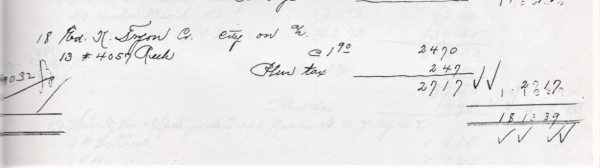 18 Ed. K. Tryon Co. city on %.
13 # 4057 Reels @ 1 90 2470
Plus tax 247
2717 2717
4032
181239